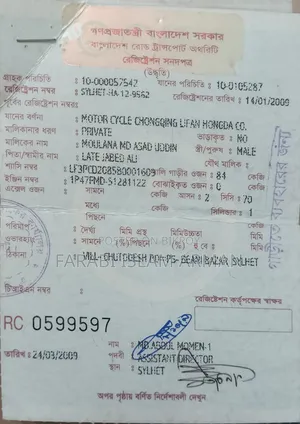 গণপ্রজাতন্ত্রী বাংলাদেশ সরকার
বাংলাদেশ রোড ট্রান্সপোর্ট অথরিটি
রেজিষ্ট্রেশন সনদপত্র
(উদ্বৃতি)
গ্রাহক পরিচিতি : 10-000057542 যানের পরিচিতি : 10-0105287
রেজিষ্ট্রেশন নম্বর : SYLHET-HA-12-9562 রেজিষ্ট্রেশনের তারিখ : 14/01/2009
পূর্বের রেজিষ্ট্রেশন নম্বর:
যানের বর্ণনা : MOTOR CYCLE CHONGQING LIFAN HONGDA CO.
মালিকানার ধরণ : PRIVATE ভাড়াকৃত : NO
মালিকের নাম : MOULANA MD ASAD UDDIN স্ত্রী/পুরুষ : MALE
পিতা/স্বামীর নাম : LATE JABED ALI যৌথ মালিক :
খালি গাড়ীর ওজন : 84 কেজি
ইঞ্জিন নম্বর : 1P47FMD-51281122 বোঝাইকৃত ওজন : 0 কেজি
এক্সেল ওজন : সামনে কেজি আসন : 2 সিসি : 70
মধ্যে সিলিন্ডার : 1
পিছনে
দৈর্ঘ্য মিমি প্রস্থ মিমি উচ্চতা মিমি
সামনে (%) পিছনে (%)
ঠিকানা : VILL- CHUTODESH PO+PS- BEANI BAZAR SYLHET
FARABI ISLAM
টিআইএন নম্বর :
রেজিষ্ট্রেশন কর্তৃপক্ষের স্বাক্ষর
RC 0599597
নাম : MD ABDUL MOMEN-1
তারিখ : 24/03/2009 পদবী : ASSISTANT DIRECTOR
স্থান : SYLHET
অপর পৃষ্ঠায় বর্ণিত নির্দেশাবলী দেখুন